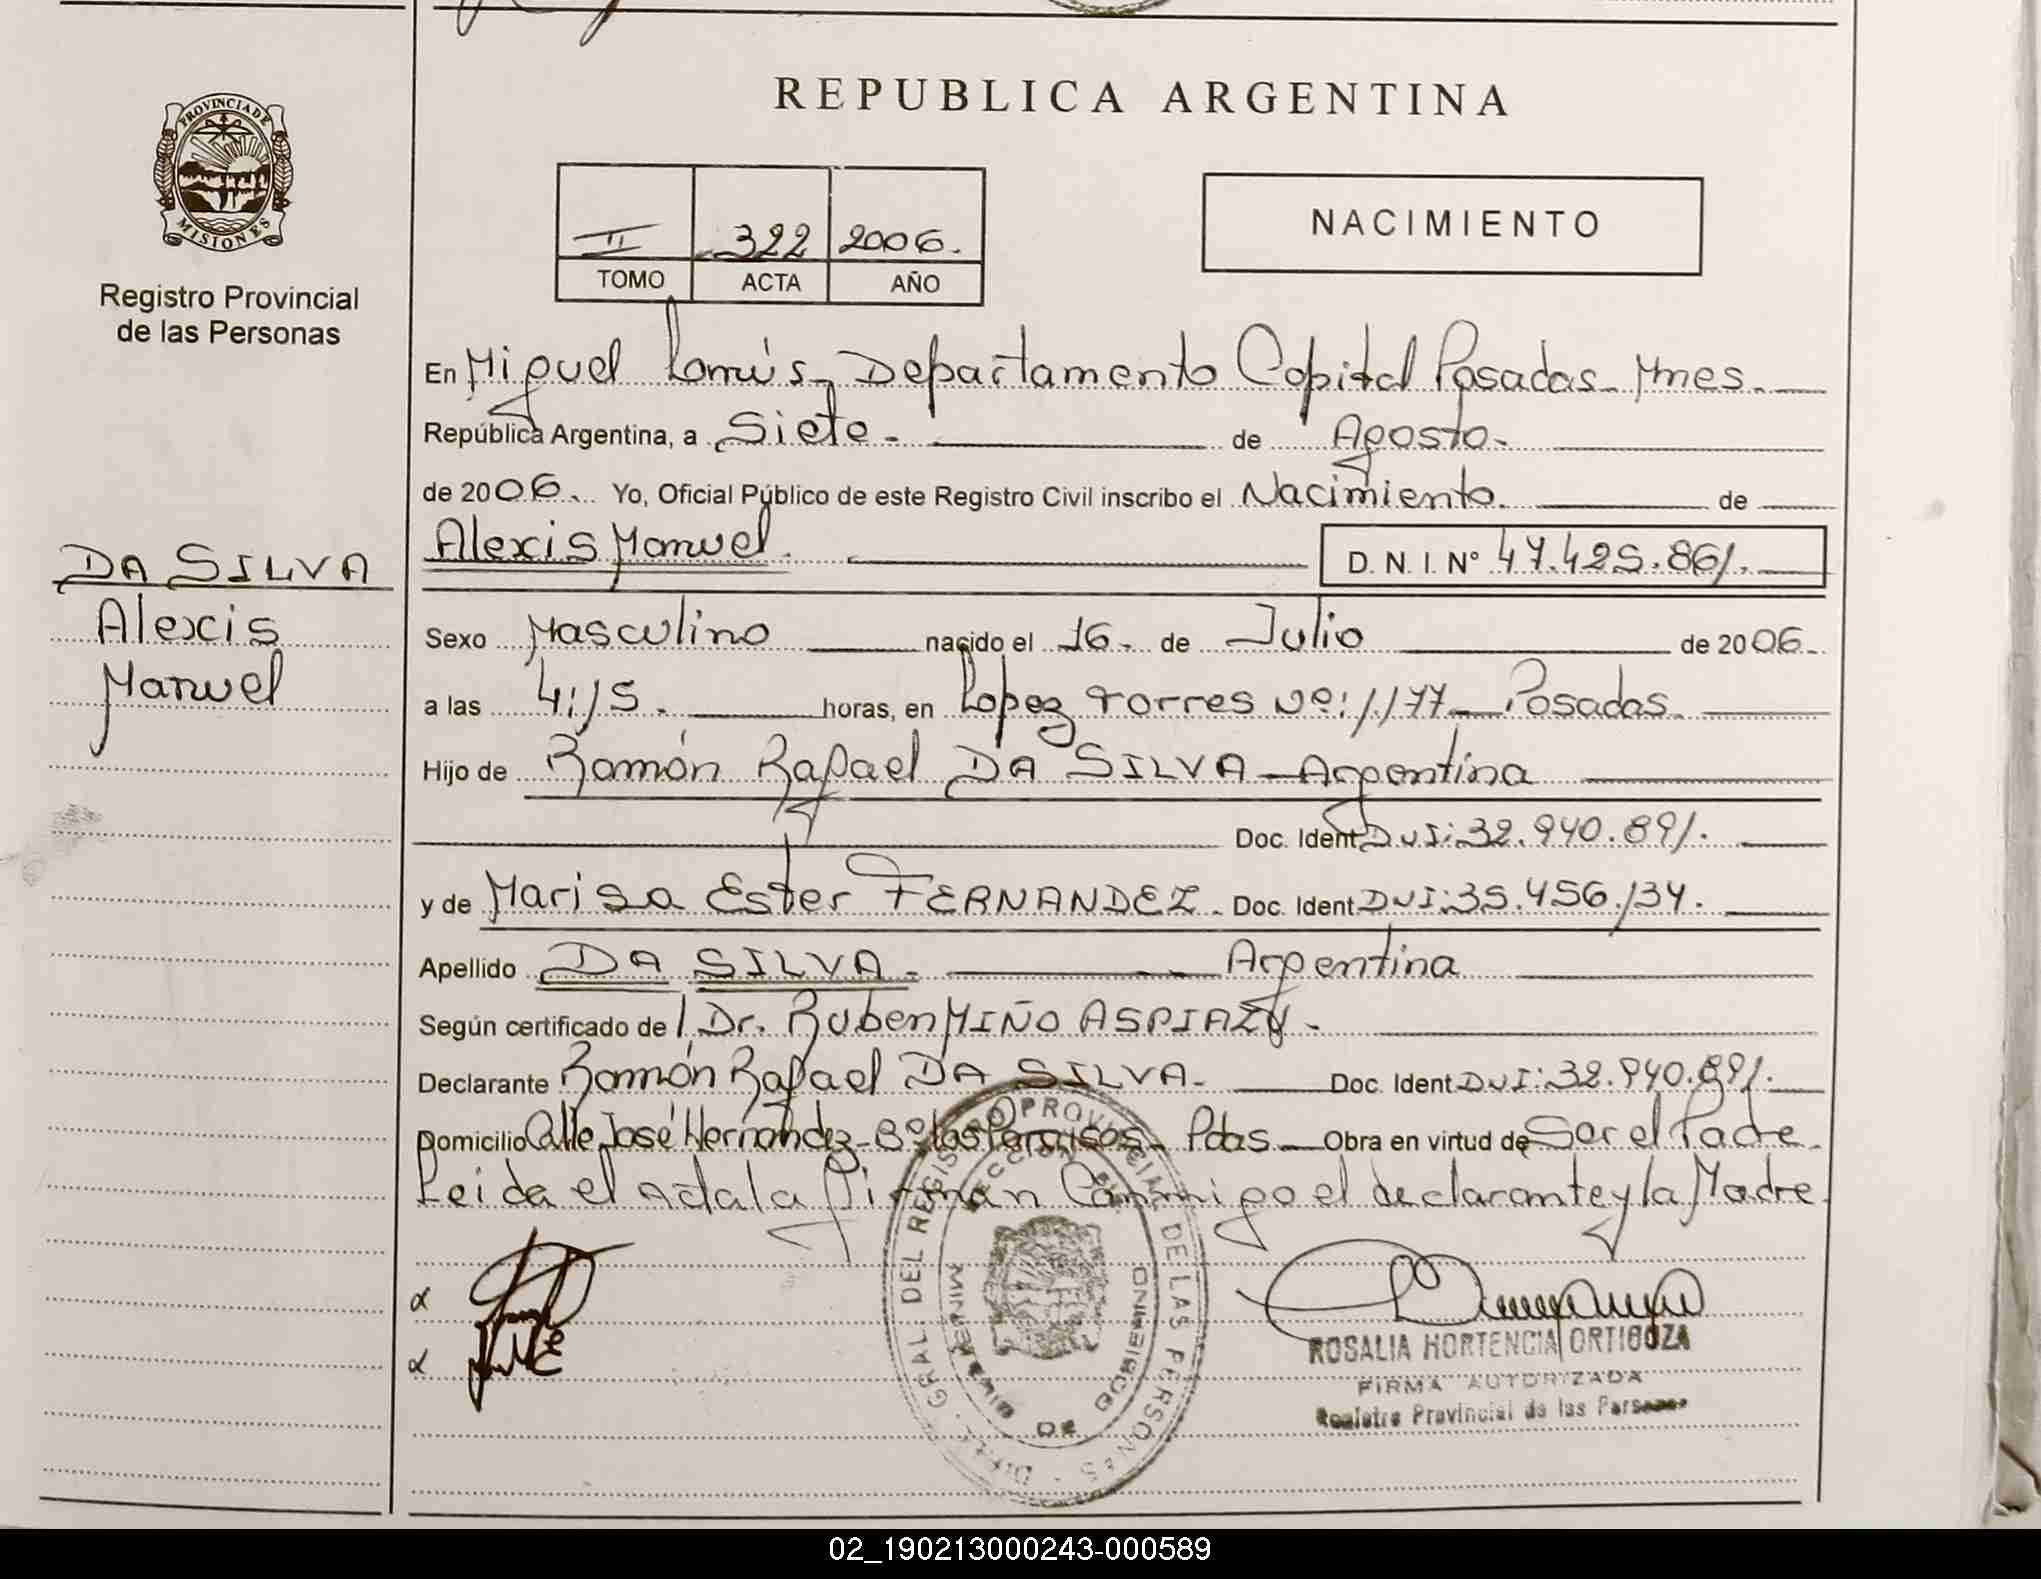 REPUBLICA ARGENTINA
PROVINCIA DE
MISIONES
Registro Provincial
de las Personas
NACIMIENTO
II 322 2006.
TOMO ACTA AÑO
En Miguel Lanús, Departamento Capital Posadas Mnes.
República Argentina, a Siete. de Agosto.
de 2006. Yo, Oficial Público de este Registro Civil inscribo el Nacimiento. de
DA SILVA
Alexis
Manuel
Alexis Manuel. D. N. I. Nº 47.425.861.
Sexo Masculino nacido el 16. de Julio de 2006.
a las 4:15. horas, en Lopez Torres Nº: 1177 Posadas.
Hijo de Ramón Rafael DA SILVA Argentina
Doc. Ident. DNI: 32.940.891.
y de Marisa Ester FERNANDEZ. Doc. Ident. DNI: 35.456.134.
Apellido DA SILVA. Argentina
Según certificado de Dr. Ruben MIÑO ASPIAZU.
Declarante Ramón Rafael DA SILVA. Doc. Ident. DNI: 32.940.891.
Domicilio Calle José Hernández Bº Los Pdas. Obra en virtud de Ser el Padre.
Leida el Acta la firman Conmigo el declarante y la Madre.
DEL REGISTRO PROVINCIAL DE LAS PERSONAS
MINISTERIO DE GOBIERNO
ROSALIA HORTENCIA ORTIGOZA
FIRMA AUTORIZADA
Registro Provincial de las Personas
02_190213000243-000589